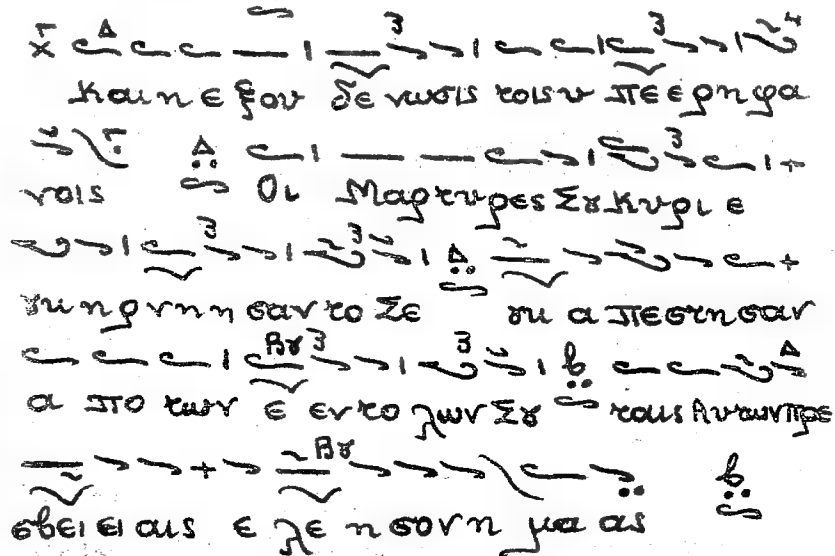 Και η ε ξου δε νωσις τοις υ πε ε ρη φα
νοις Οι Μαρτυρες Σȣ Κυρι ε
ȣκ η ρ νη η σαν το Σε ȣκ α πεστη σαν
α πο των ε εν το λων Σȣ ταις Αυτων πρε
σβει ει αις ε λε η σον η μα ας